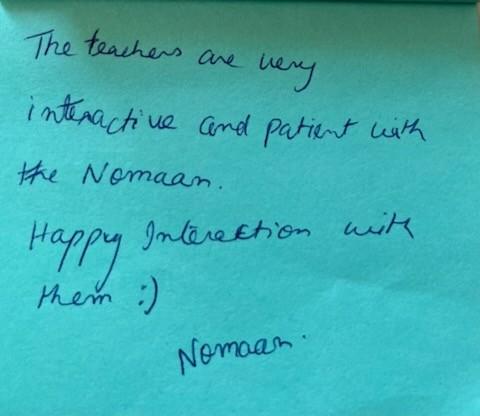 The teachers are very
interactive and patient with
the Nomaan.
Happy Interaction with
them :)
Nomaan.